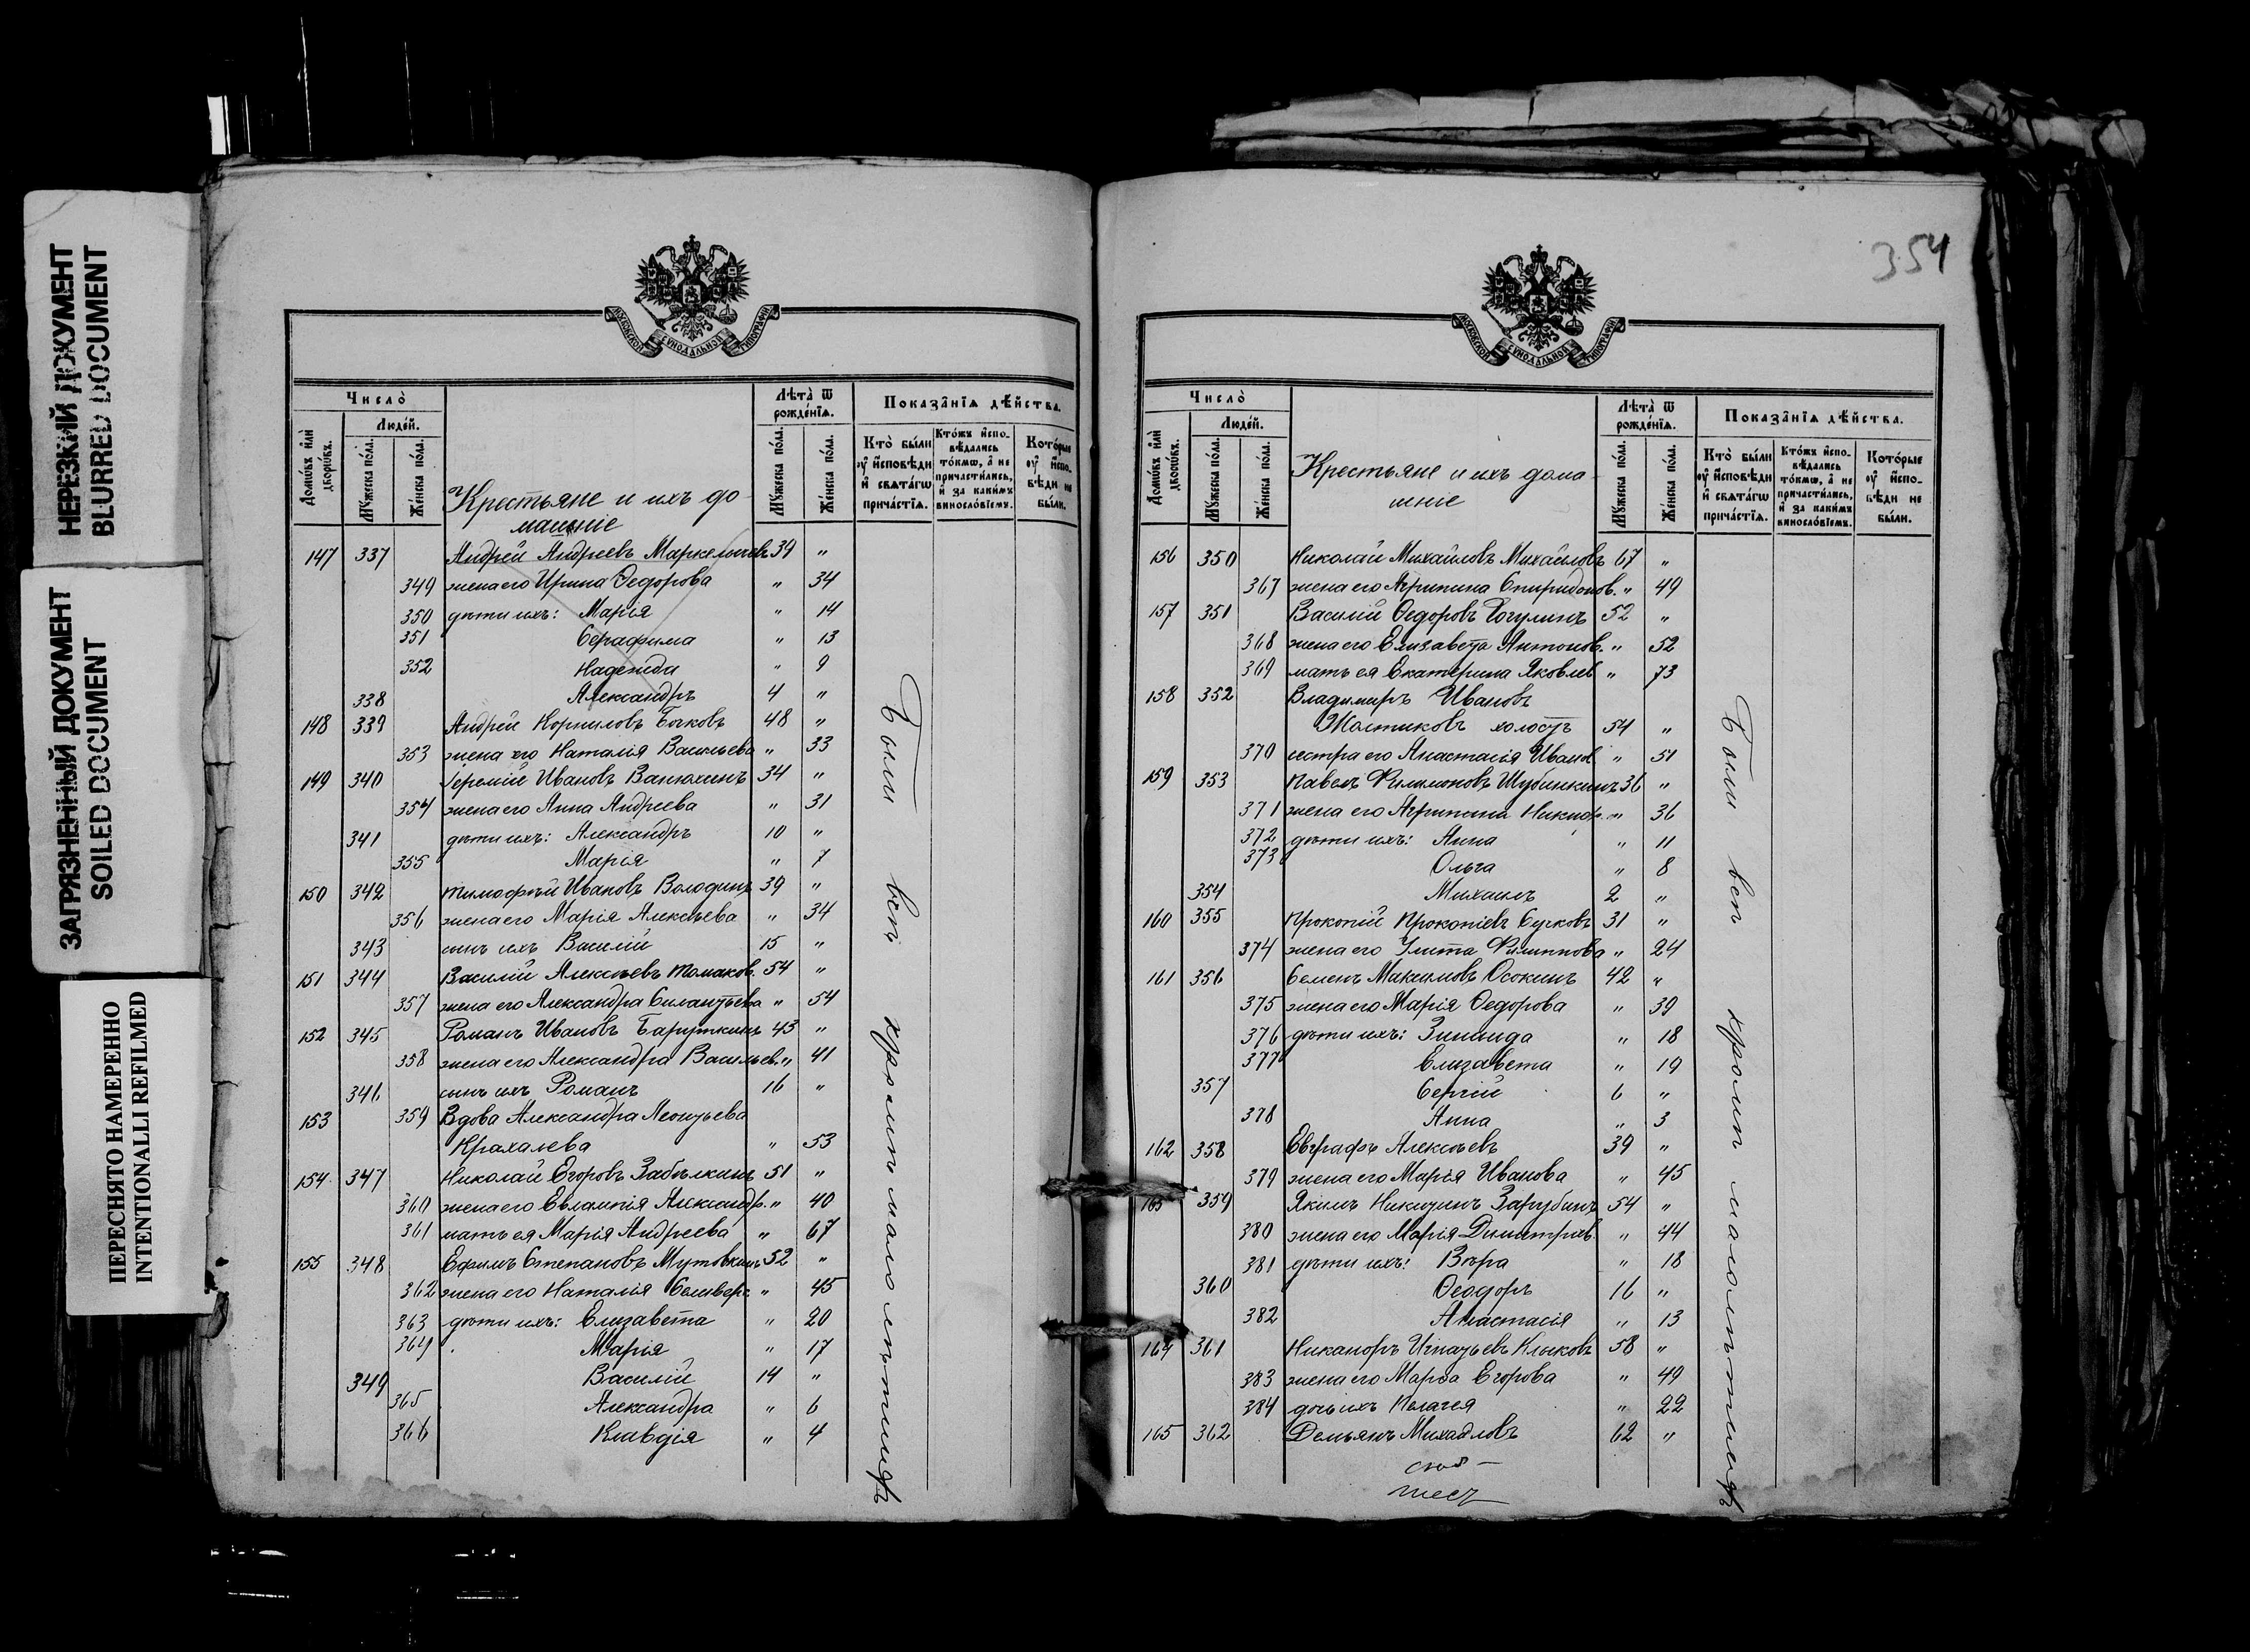 НЕРЕЗКИЙ ДОКУМЕНТ
BLURRED DOCUMENT
ЗАГРЯЗНЕННЫЙ ДОКУМЕНТ
SOILED DOCUMENT
ПЕРЕСНЯТО НАМЕРЕННО
INTENTIONALLI REFILMED
МОСКОВСКОЙ СѴНОДАЛЬНОЙ ТИПОГРАФІИ
Число̀
Людéй.
Домѡ́въ и҆лѝ дворѡ́въ.
Мꙋ́жеска по́ла.
Же́нска по́ла.
Крестьяне и ихъ до-
машніе
Лѣта̀ ѿ рожде́нїѧ.
Мꙋ́жеска по́ла.
Же́нска по́ла.
Показа̑нїѧ дѣ́йства.
Кто̀ бы́ли ᲂу҆ и҆сповѣди и҆ свѧта́гѡ прича́стїѧ.
Кто́жъ и҆сповѣдались то́кмѡ, а҆ не причасти́лись, и҆ за каки́мъ винословїемъ.
Кото́рые ᲂу҆ и҆сповѣди не бы́ли.
147 337 Андрей Андреевъ Маркелычевъ 39 "
349 жена его Ирина Ѳедорова " 34
350 дѣти ихъ: Марія " 14
351 Серафима " 13
352 Надежда " 9
338 Александръ 4 "
148 339 Андрей Корниловъ Бочковъ 48 "
353 жена его Наталія Васильева " 33
149 340 Іеремій Ивановъ Ванюхинъ 34 "
354 жена его Анна Андреева " 31
341 дѣти ихъ: Александръ 10 "
355 Марія " 7
150 342 Тимофѣй Ивановъ Володинъ 39 "
356 жена его Марія Алексѣева " 34
343 сынъ ихъ Василій 15 "
151 344 Василій Алексѣевъ Томаков. 54 "
357 жена его Александра Силантьева " 54
152 345 Романъ Ивановъ Баруткинъ 43 "
358 жена его Александра Васильев. " 41
346 сынъ ихъ Романъ 16 "
153 359 Вдова Александра Леонтьева
Крахалева " 53
154 347 Николай Егоровъ Забѣлкинъ 51 "
360 жена его Евлампія Александр. " 40
361 мать ея Марія Андреева " 67
155 348 Ефимъ Степановъ Мутовкинъ 52 "
362 жена его Наталія Селивер. " 45
363 дѣти ихъ: Елизавета " 20
364 Марія " 17
349 Василій 14 "
365 Александра " 6
366 Клавдія " 4
Были всѣ кромѣ малолѣтнихъ
354
МОСКОВСКОЙ СѴНОДАЛЬНОЙ ТИПОГРАФІИ
Число̀
Людéй.
Домѡ́въ и҆лѝ дворѡ́въ.
Мꙋ́жеска по́ла.
Же́нска по́ла.
Крестьяне и ихъ дома-
шніе
Лѣта̀ ѿ рожде́нїѧ.
Мꙋ́жеска по́ла.
Же́нска по́ла.
Показа̑нїѧ дѣ́йства.
Кто̀ бы́ли ᲂу҆ и҆сповѣди и҆ свѧта́гѡ прича́стїѧ.
Кто́жъ и҆сповѣдались то́кмѡ, а҆ не причасти́лись, и҆ за каки́мъ винословїемъ.
Кото́рые ᲂу҆ и҆сповѣди не бы́ли.
156 350 Николай Михайловъ Михайловъ 67 "
367 жена его Агрипина Спиридонов. " 49
157 351 Василій Ѳедоровъ Гогулинъ 52 "
368 жена его Елизавета Антонов. " 52
369 мать ея Екатерина Яковлев " 73
158 352 Владимиръ Ивановъ
Жостиковъ холостъ 54 "
370 сестра его Анастасія Иванов " 51
159 353 Павелъ Филимоновъ Шубинкинъ 36 "
371 жена его Агрипина Никиф. " 36
372 дѣти ихъ: Анна " 11
373 Ольга " 8
354 Михаилъ 2 "
160 355 Прокопій Прокопіевъ Сучковъ 31 "
374 жена его Улита Филиппова " 24
161 356 Семенъ Максимовъ Осокинъ 42 "
375 жена его Марія Ѳедорова " 39
376 дѣти ихъ: Зинаида " 18
377 Елизавета " 19
357 Сергій 6 "
378 Анна " 3
162 358 Евграфъ Алексѣевъ 39 "
379 жена его Марія Иванова " 45
163 359 Якимъ Никитинъ Зарубинъ 54 "
380 жена его Марія Димитріев. " 44
381 дѣти ихъ: Вѣра " 18
360 Ѳеодоръ 16 "
382 Анастасія " 13
164 361 Никаноръ Игнатьевъ Клыковъ 58 "
383 жена его Марѳа Егорова " 49
384 дочь ихъ Пелагея " 22
165 362 Демьянъ Михайловъ 62 "
Были всѣ кромѣ малолѣтнихъ